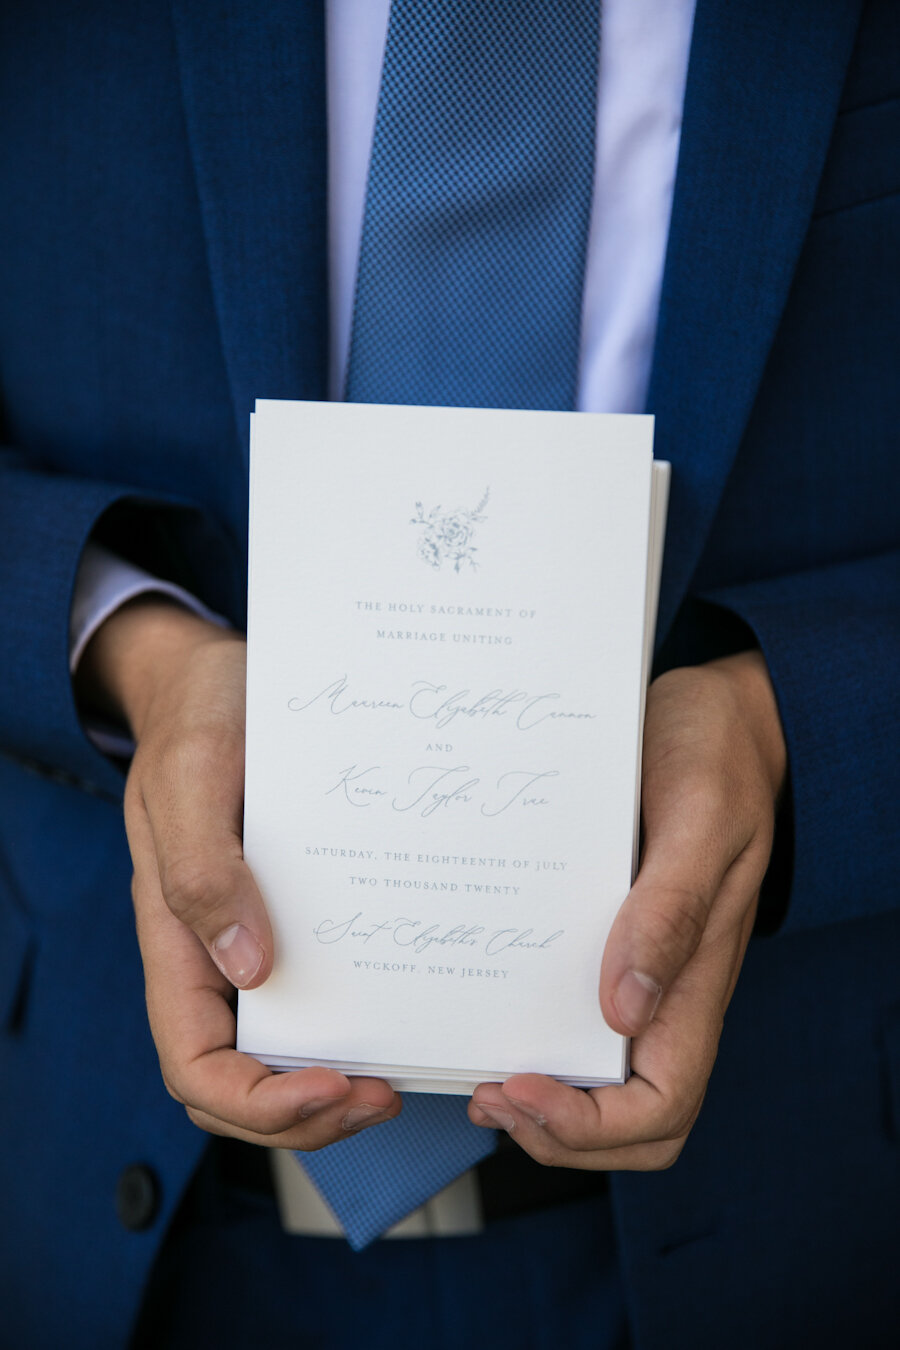 THE HOLY SACRAMENT OF
MARRIAGE UNITING
Maureen Elizabeth Cannon
AND
Kevin Taylor True
SATURDAY, THE EIGHTEENTH OF JULY
TWO THOUSAND TWENTY
Saint Elizabeth's Church
WYCKOFF, NEW JERSEY